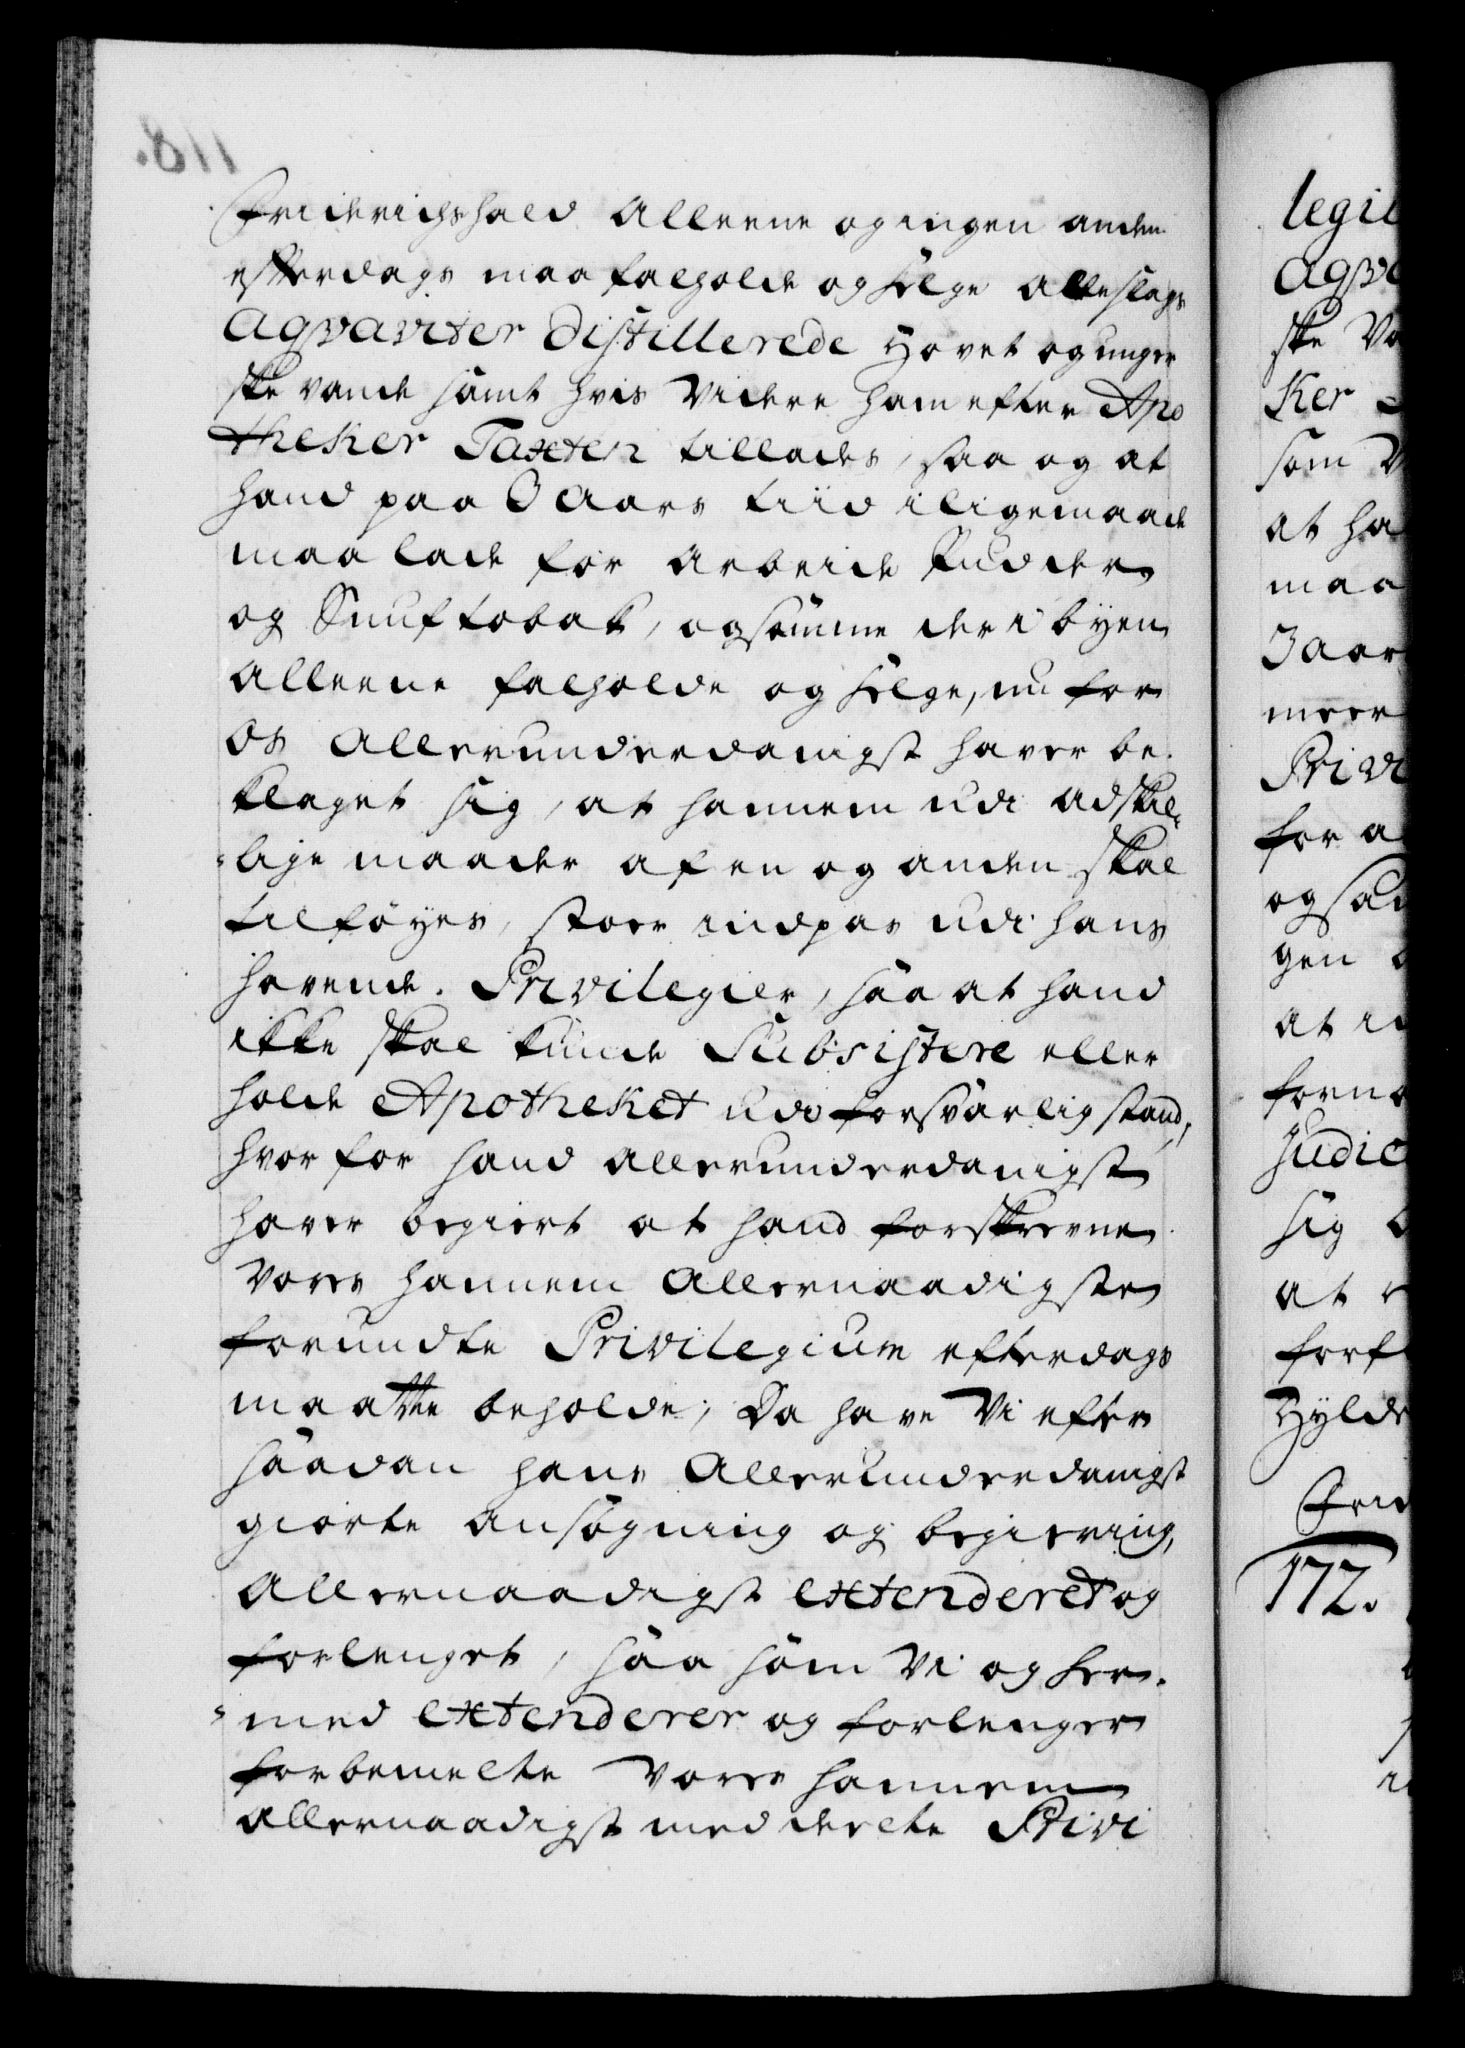 Friderichshald Alleene og ingen anden
efterdags maa falholde og selge alle slags
Aqvaviter Distillerede Hovet og unger
ske vande samt hvis videre ham efter Apo
theker Taxten tillades, saa og at
hand paa 3 Aars tiid iligemaade
maa lade for arbeide Pudder
og Snuftobak, og samme der i byen
alleene falholde og selge, nu for
os Allerunderdanigst haver be-
klaget sig, at hannem udi adskil-
lige maader af en og anden skal
tilføyes, stoer indpas udi hans
havende Privilegier, saa at hand
ikke skal kunde Subsistere eller
holde Apotheket udi forsvarlig stand,
hvorfor hand allerunderdanigst
haver begiert at hand forskrevne
vores hannem Allernaadigste
forundte Privilegium efterdags
maatte beholde; Da have Vi efter
saadan hans Allerunderdanigst
giorte ansøgning og begiering,
Allernaadigst extenderet og
forlenget, saa som Vi og her-
med extenderer og forlenger
forbemelte vores hannem
allernaadigst meddeelte Privi
legii
Aqva
ske Va
ker
som
at ha
maa
3 aar
meer
Privi
for a
og saa
gen
at in
forna
Judic
sig
at
forf
Hylde
Frid
172.